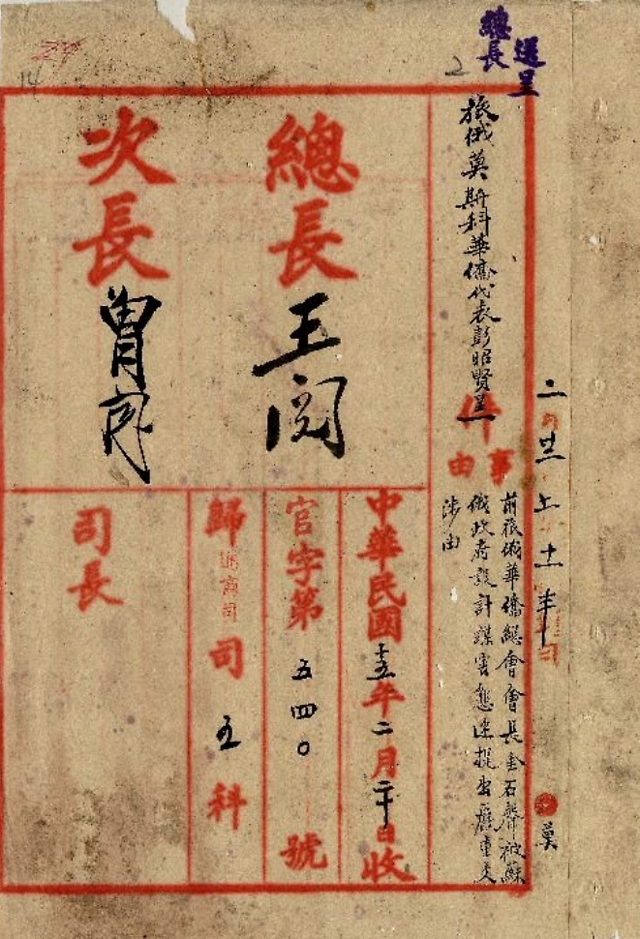 逕呈
總長
2
旅俄莫斯科華僑代表彭昭賢呈
件
事由
前旅俄華僑總會會長金石聲被蘇
俄政府設計謀害懇速提出嚴重交
涉由
總長
王閱
次長
曾閱
中華民國十五年二月二十日收
官字第五四〇號
歸通商司司五科
司長
二月廿上十一半
莫
14